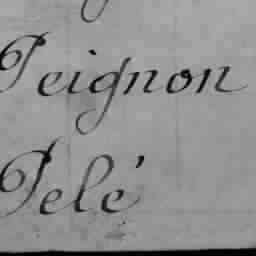 Peignon
Pelé